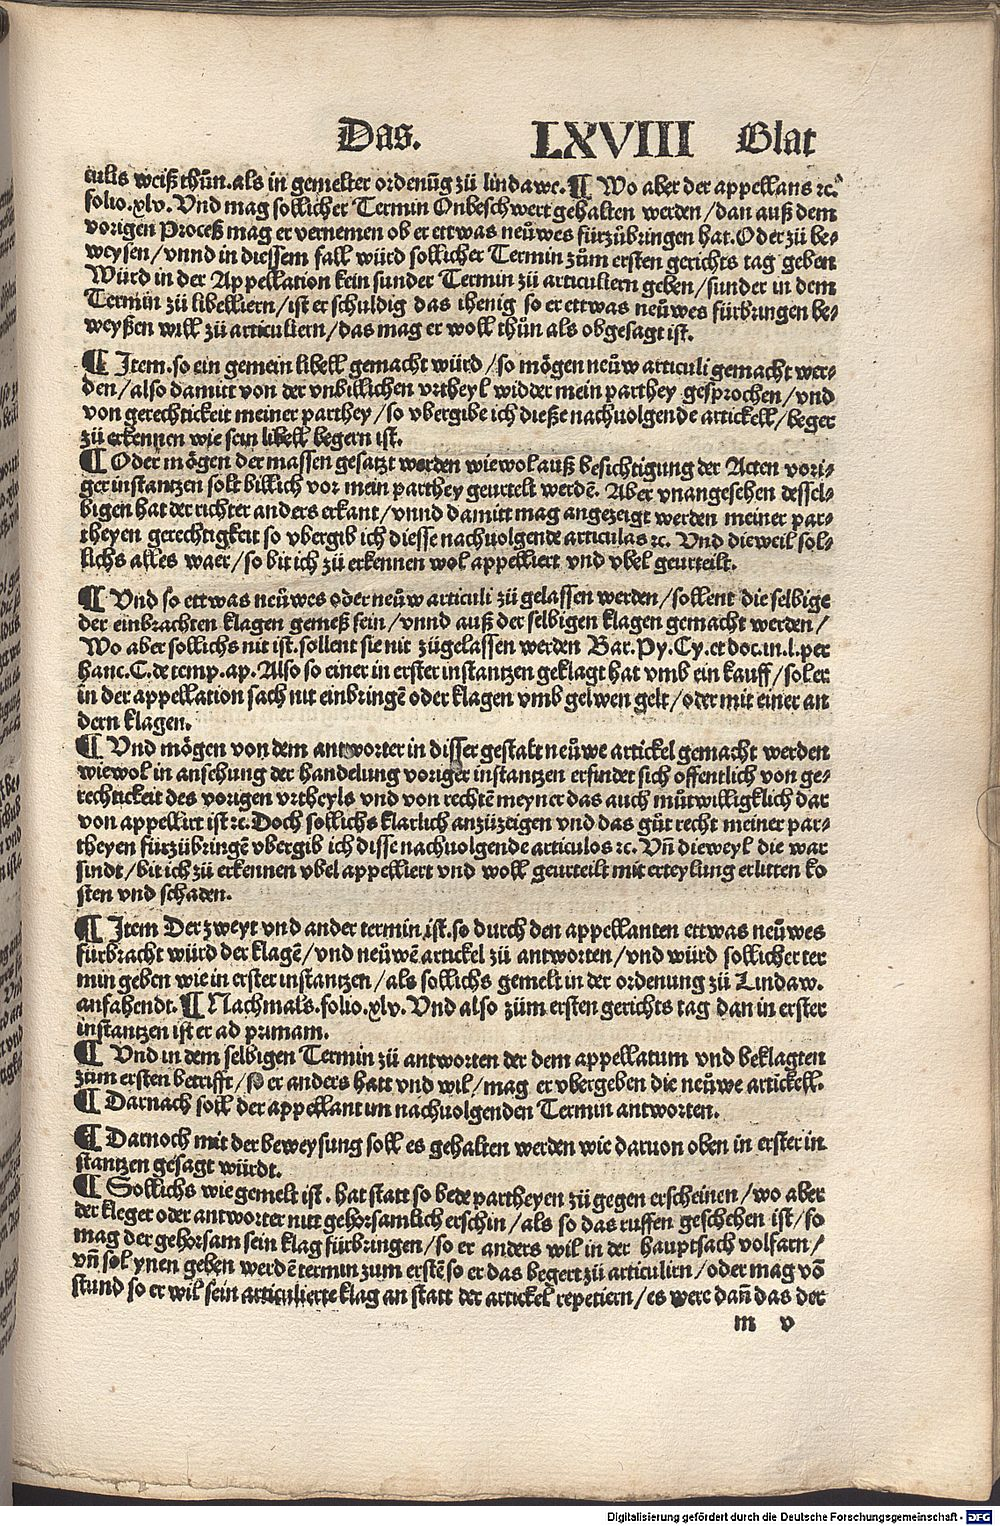 Das. LXVIII Blat
culis weiß thůn.als in gemelter ordenūg zů lindawe.¶ Wo aber der appellans ꝛc.
folio.xlv. Vnd mag sollicher Termin Onbeschwert gehalten werden/dan auß dem
vorigen Proceß mag er vernemen ob er ettwas neůwes fürzůbringen hat.Oder zů be⸗
weysen/vnnd in diessem fall würd sollicher Termin zům ersten gerichts tag geben
Würd in der Appellation kein sunder Termin zů articuliern geben/sunder in dem
Termin zů libelliern/ist er schuldig das ihenig so er ettwas neůwes fürbringen be⸗
weyßen will zů articuliern/das mag er woll thůn als obgesagt ist.
¶ Item.so ein gemein libell gemacht würd/so mögen neůw articuli gemacht wer⸗
den/also damitt von der vnbillichen vrtheyl widder mein parthey gesprochen/vnd
von gerechtickeit meiner parthey/so vbergibe ich dieße nachuolgende artickell/beger
zů erkennen wie sein libell begern ist.
¶ Oder mögen der massen gesatzt werden wiewol auß besichtigung der Acten vori⸗
ger instantzen solt billich vor mein parthey geurtelt werdē. Aber vnangesehen dessel⸗
bigen hat der richter anders erkant/vnnd damitt mag angezeigt werden meiner par⸗
theyen gerechtigkeit so vbergib ich diesse nachuolgende articulas ꝛc. Vnd dieweil sol⸗
lichs alles waer/so bit ich zů erkennen wol appelliert vnd vbel geurteilt.
¶ Vnd so ettwas neůwes oder neůw articuli zů gelassen werden/sollent die selbige
der einbrachten klagen gemeß sein/vnnd auß der selbigen klagen gemacht werden/
Wo aber sollichs nit ist.sollent sie nit zůgelassen werden Bar.Py.Cy.et doc.in.l.per
hanc.C.de temp.ap.Also so einer in erster instantzen geklagt hat vmb ein kauff/sol er
in der appellation sach nit einbringē oder klagen vmb gelwen gelt/oder mit einer an
dern klagen.
¶ Vnd mögen von dem antworter in disser gestalt neůwe artickel gemacht werden
wiewol in ansehung der handelung voriger instantzen erfindet sich offentlich von ge⸗
rechtickeit des vorigen vrtheyls vnd von rechtē meyner das auch můtwilligklich dar
von appellirt ist ꝛc.Doch sollichs klarlich anzůzeigen vnd das gůt recht meiner par⸗
theyen fürzůbringē vbergib ich disse nachuolgende articulos ꝛc. Vn̄ dieweyl die war
sindt/bit ich zů erkennen vbel appelliert vnd woll geurteilt mit erteylung erlitten ko
sten vnd schaden.
¶ Item Der zweyt vnd ander termin ist.so durch den appellanten ettwas neůwes
fürbracht würd der klagē/vnd neůwē artickel zů antworten/vnd würd sollicher ter
min geben wie in erster instantzen/als sollichs gemelt in der ordenung zů Lindaw.
anfahendt.¶ Nachmals.folio.xlv.Vnd also zům ersten gerichts tag dan in erster
instantzen ist er ad primam.
¶ Vnd in dem selbigen Termin zů antworten der dem appellatum vnd beklagten
zum ersten betrifft/so er anders hatt vnd wil/mag er vbergeben die neůwe artickell.
¶ Darnach soll der appellant im nachuolgenden Termin antworten.
¶ Darnoch mit der beweysung soll es gehalten werden wie daruon oben in erster in
stantzen gesagt würdt.
¶ Sollichs wie gemelt ist. hat statt so bede partheyen zů gegen erscheinen/wo aber
der kleger oder antworter nitt gehorsamlich erschin/als so das ruffen geschehen ist/so
mag der gehorsam sein klag fürbringen/so er anders wil in der hauptsach volfarn/
vn̄ sol ynen geben werdē termin zum erstē so er das begert zů articulirn/oder mag vō
stund so er wil sein articulierte klag an statt der artickel repetiern/es were dan̄ das der
m v
Digitalisierung gefördert durch die Deutsche Forschungsgemeinschaft - DFG